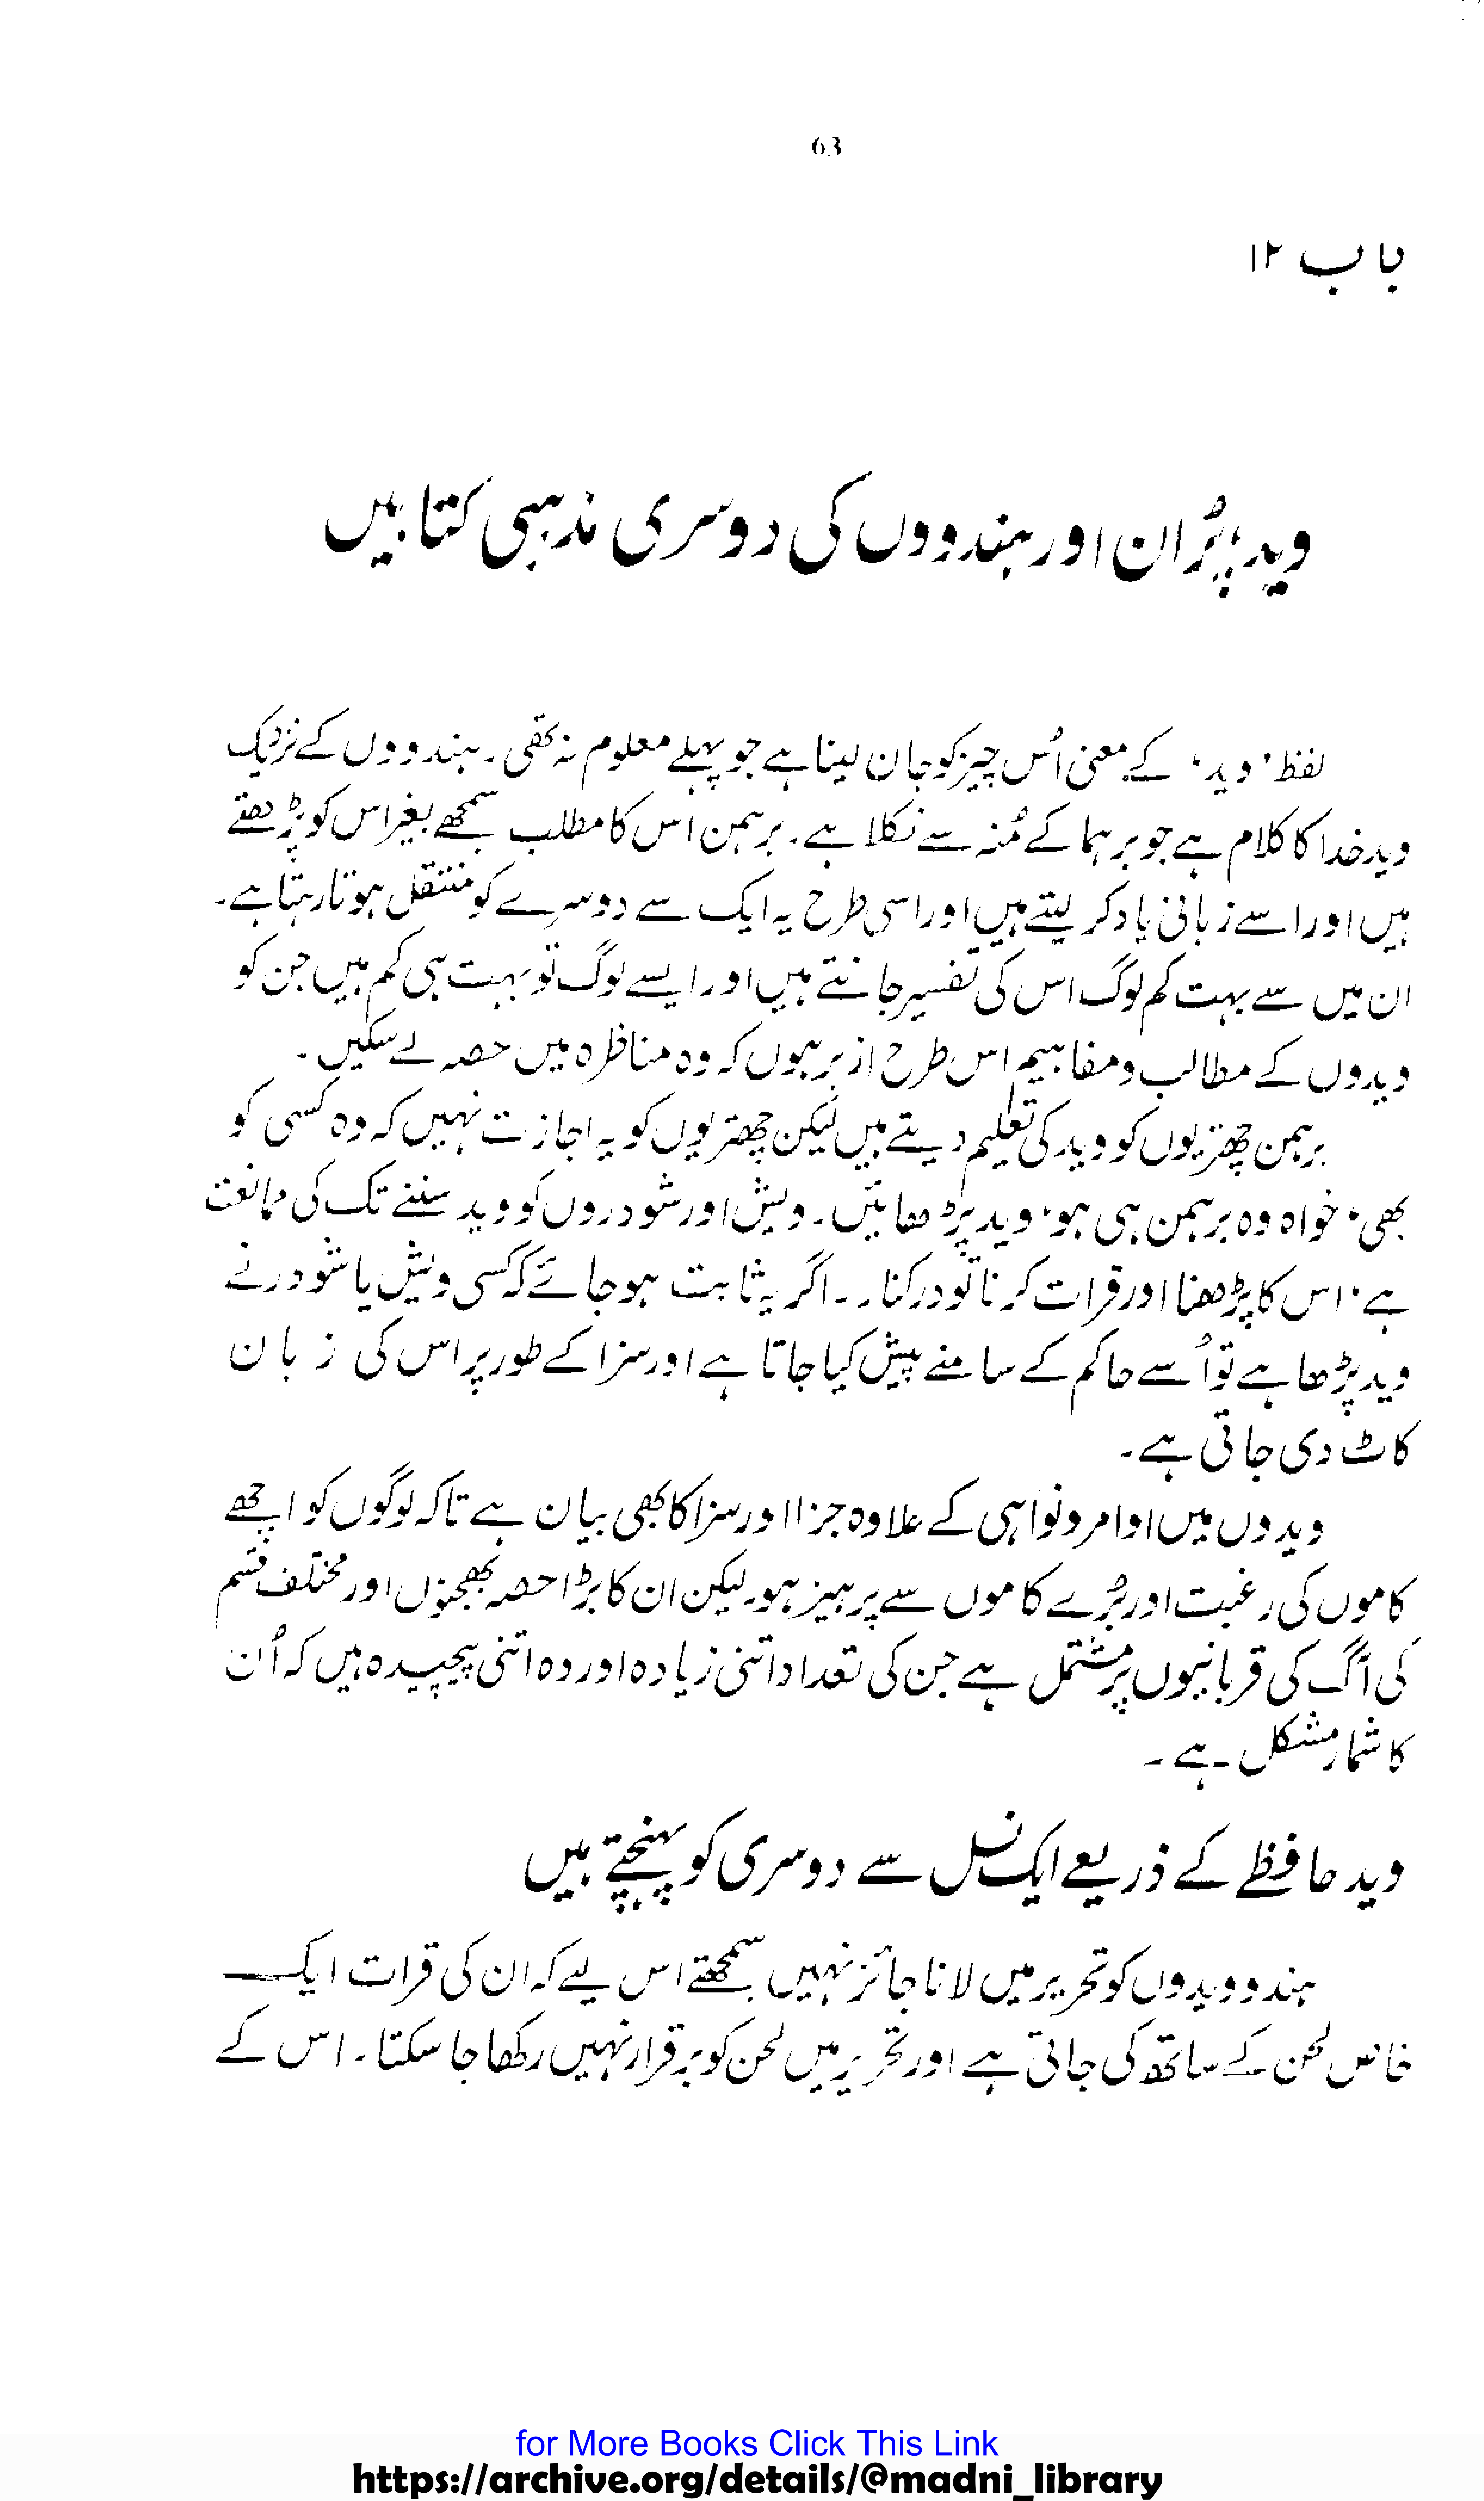 63
باب ۱۲
وید، پُران اور ہندووں کی دوسری مذہبی کتابیں
لفظ ’وید‘ کے معنی اُس چیز کو جان لینا ہے جو پہلے معلوم نہ تھی۔ ہندووں کے نزدیک
وید خدا کا کلام ہے جو برہما کے مُنہ سے نکلا ہے۔ برہمن اس کا مطلب سمجھے بغیر اس کو پڑھتے
ہیں اور اسے زبانی یاد کر لیتے ہیں اور اسی طرح یہ ایک سے دوسرے کو منتقل ہوتا رہتا ہے۔
ان میں سے بہت کم لوگ اس کی تفسیر جانتے ہیں اور ایسے لوگ تو بہت ہی کم ہیں جن کو
ویدوں کے مطالب و مفاہیم اس طرح ازبر ہوں کہ وہ مناظرہ میں حصہ لے سکیں۔
برہمن چھتریوں کو وید کی تعلیم دیتے ہیں لیکن چھتریوں کو یہ اجازت نہیں کہ وہ کسی کو
بھی، خواہ وہ برہمن ہی ہو، وید پڑھائیں۔ ویش اور شودروں کو وید سننے تک کی ممانعت
ہے، اس کا پڑھنا اور قرات کرنا تو درکنار۔۔ اگر یہ ثابت ہو جائے کہ کسی ویش یا شودر نے
وید پڑھا ہے تو اُسے حاکم کے سامنے پیش کیا جاتا ہے اور سزا کے طور پر اس کی زبان
کاٹ دی جاتی ہے۔
ویدوں میں اوامر و نواہی کے علاوہ جزا اور سزا کا بھی بیان ہے تاکہ لوگوں کو اچھے
کاموں کی رغبت اور بُرے کاموں سے پرہیز ہو۔ لیکن ان کا بڑا حصہ بھجنوں اور مختلف قسم
کی آگ کی قربانیوں پر مشتمل ہے جن کی تعداد اتنی زیادہ اور وہ اتنی پیچیدہ ہیں کہ اُن
کا شمار مشکل ہے۔
وید حافظے کے ذریعے ایک نسل سے دوسری کو پہنچتے ہیں
ہندو ویدوں کو تحریر میں لانا جائز نہیں سمجھتے اس لیے کہ ان کی قرات ایک
خاص لحن کے ساتھ کی جاتی ہے اور تحریر میں لحن کو برقرار نہیں رکھا جا سکتا۔ اس کے
for More Books Click This Link
https://archive.org/details/@madni_library